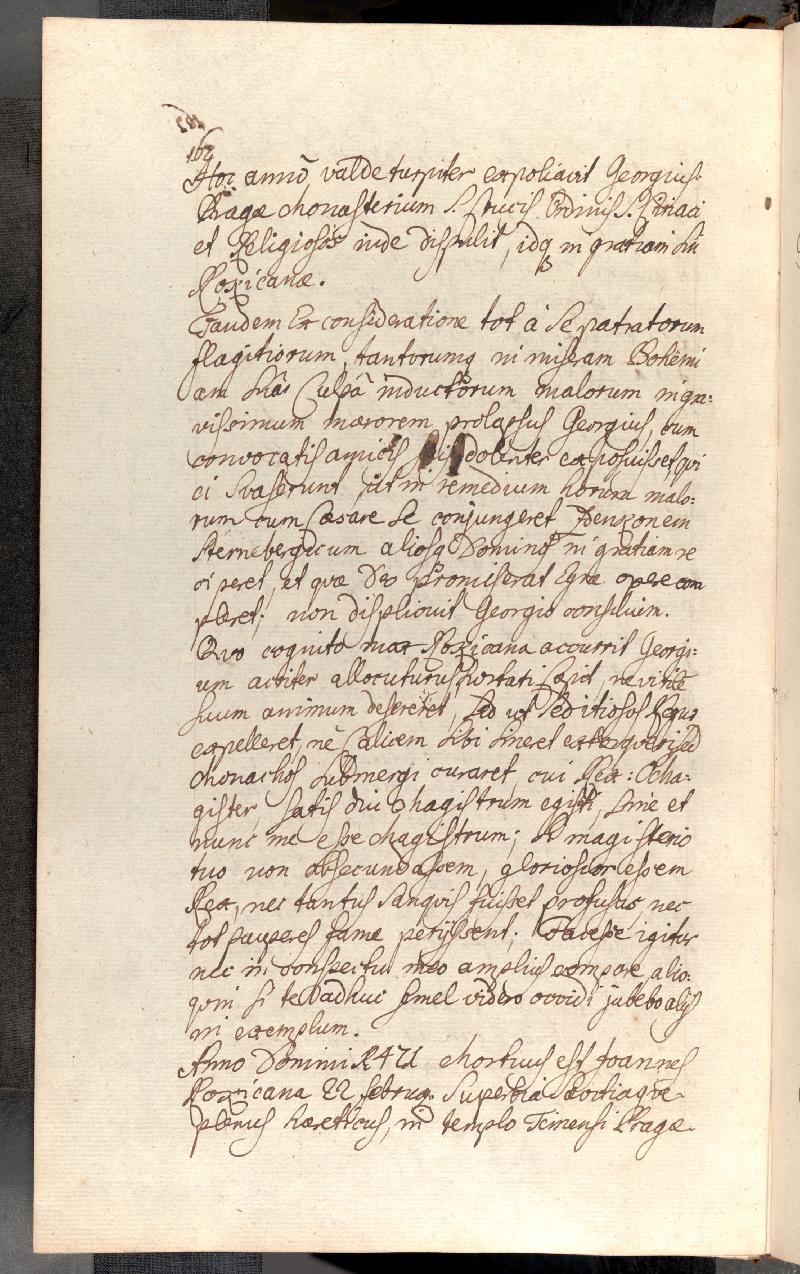 162
Hoc annō, valde turpiter expoliavit Georgius
Pragæ Monasterium S. Crucis Ordinis S. Ciriaci
et Religiosos inde dispulit, idq in gratiam sui
Rokicanæ.
Tandem Ex consideratione tot à Se patratorum
flagitiorum, tantorumq in miseram Bohemi
am suâ Culpâ inductorum malorum in gra:
vissimum mærorem prolapsus Georgius, cum
convocatis amicis dolenter exposuisset, qui
ei svaserunt, ut in remedium horum malo:
rum cum Cæsare Se conjungeret Zdenkonem
Sternebergicum aliosq Dominos in gratiam re
ciperet, et quæ Deo promiserat Egræ opere com
pleret; non displicuit Georgio consilium.
Quo cognito mox Rokicana accurrit Georgi:
um acriter allocuturus, hortati cæpit, ne virilē
suum animum desereret, Sed ut Seditiosos Regno
expelleret, nē Calicem Sibi Sineret extorqueri, sed
Monachos Submergi curaret, cui Rex: O Ma:
gister, satis diu Magistrum egisti, Sine et
nunc me esse Magistrum; Si magisterio
tuo non obsecundassem, gloriosior essem
Rex, nec tantus Sangvis fuisset profusus, nec
tot pauperes fame perijssent; Facesse igitur
nec in conspectu meo amplius compare alio:
qvin si te adhuc semel videro occidi jubebo alijs
in exemplum.
Anno Domini 1471 Mortuus est Joannes
Rokicana 22 februa. Superbia
plenus hæreticus, in templo Teinensi Pragæ